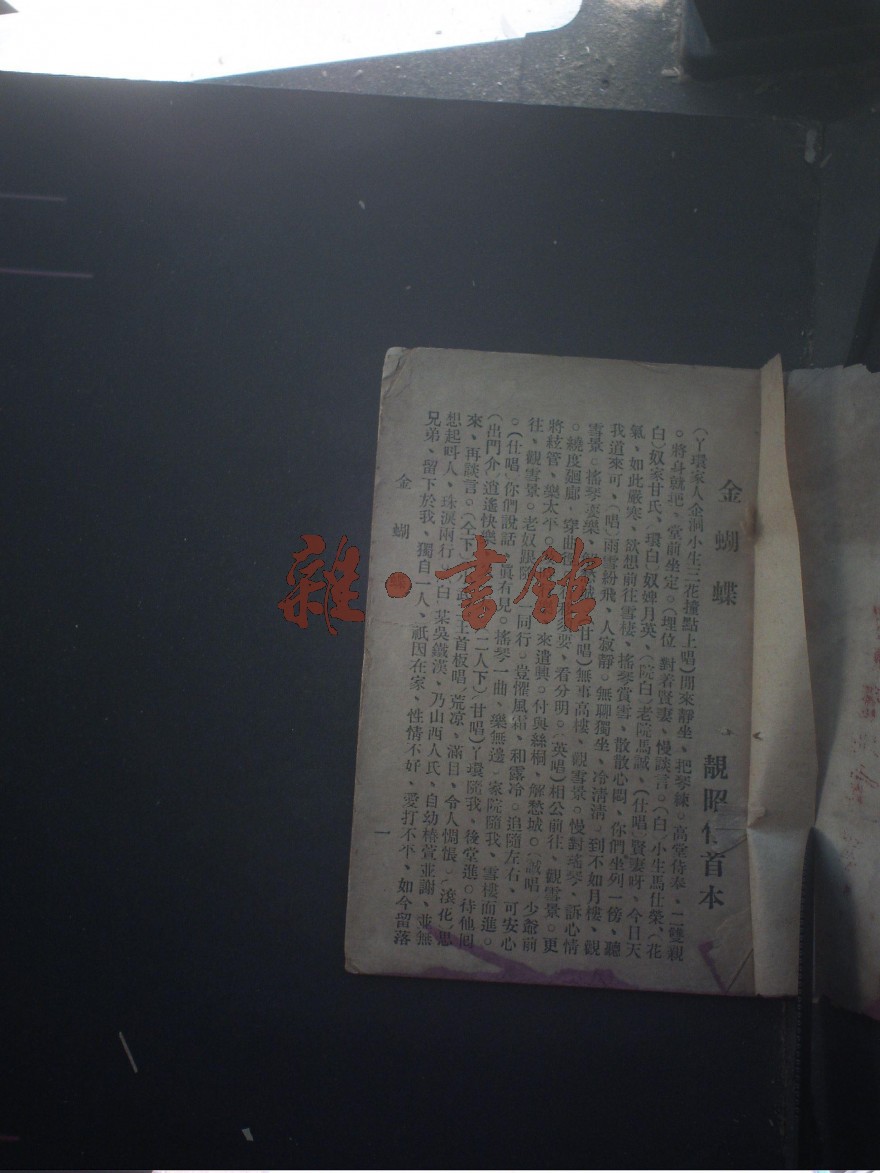 金蝴蝶
靚昭仔首本
(丫環家人金洞小生三花撞點上唱)閒來靜坐、把琴練。高堂侍奉、二雙親
。將身就地、堂前坐定。(埋位)對着賢妻、慢談言。(白)小生馬仕榮、(花
白)奴家甘氏、(環白)奴婢月英、(院白)老院馬誠、(仕唱)賢妻呀、今日天
氣、如此嚴寒、欲想前往雪樓、搖琴賞雪、散散心悶、你們坐列一傍、聽
我道來可、(唱)雨雪紛飛、人寂靜。無聊獨坐、冷淸淸、到不如月樓、觀
雪景。搖琴耍樂、甘唱)無事高樓、觀雪景。慢對瑤琴、訴心情
。繞度廻廊、穿曲要、看分明。(英唱)相公前往、觀雪景。更
將絃管、樂太平。來遣興。付與絲桐、解愁城。(誠唱)少爺前
往、觀雪景。老奴跟隨、一同行。豈懼風霜、和露冷。追隨左右、可安心
。(仕唱)你們說話、眞有見。搖琴一曲、樂無邊、家院隨我、雪樓而進。
(出門介)逍遙快樂、二人下)(甘唱)丫環隨我、後堂進。侍他回
來、再談言。(仝下)主首板唱)荒凉、滿目、令人惆悵、(滾花)思
想起呌人、珠淚兩行、(白)某吳鐵漢、乃山西人氏、自幼椿萱並謝、並無
兄弟、留下於我、獨自一人、祇因在家、性情不好、愛打不平、如今留落
金蝴
一
雜·書館